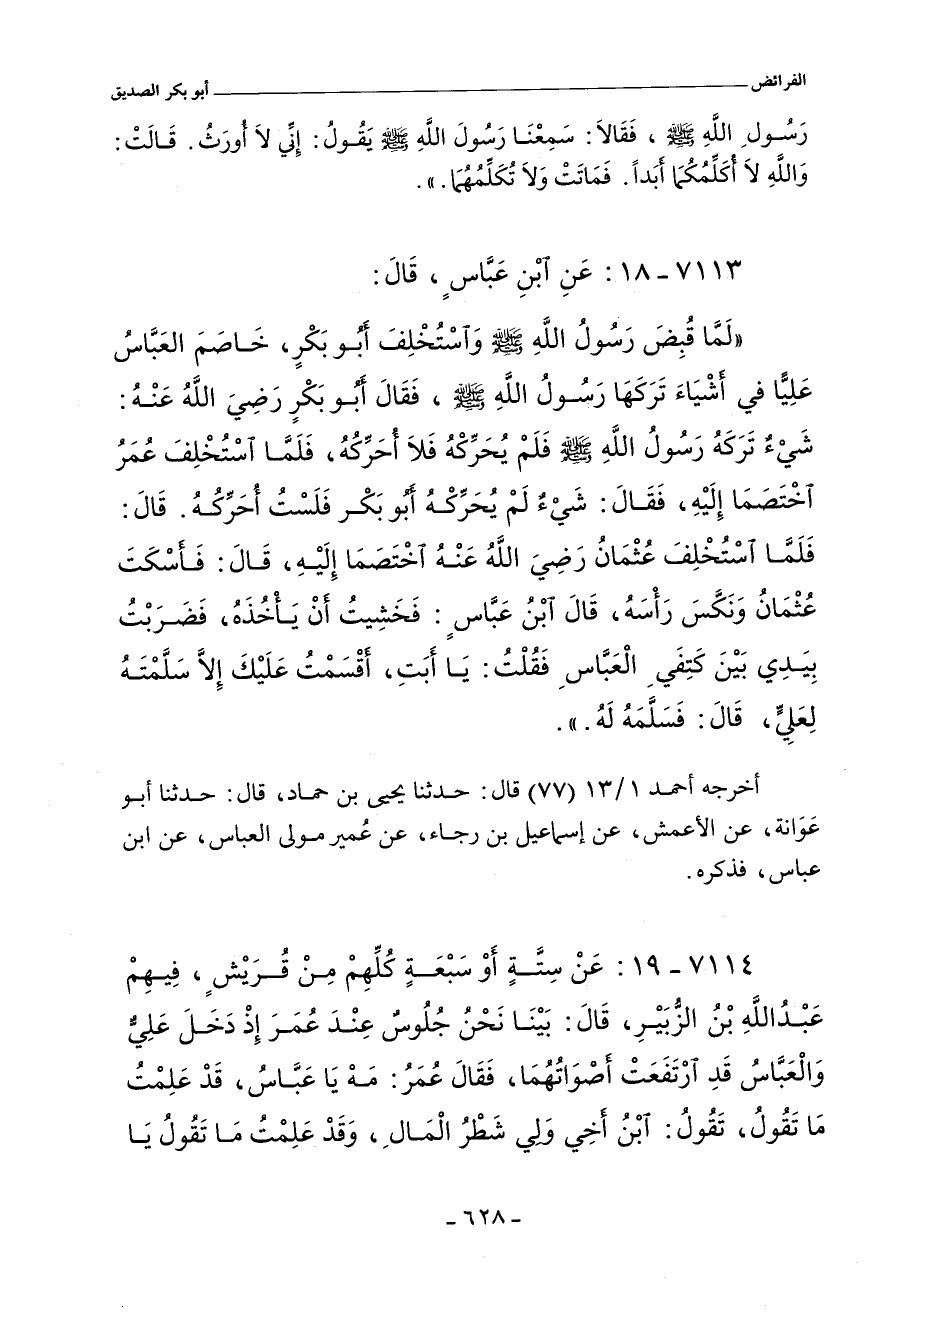 الفرائض أبو بكر الصديق
رَسُولِ اللَّهِ ﷺ ، فَقَالاَ : سَمِعْنَا رَسُولَ اللَّهِ ﷺ يَقُولُ : إِنِّي لاَ أُورَثُ . قَالَتْ :
وَاللَّهِ لاَ أُكَلِّمُكُمَا أَبَداً . فَمَاتَتْ وَلاَ تُكَلِّمُهُمَا . » .
٧١١٣ - ١٨ : عَنِ ٱبْنِ عَبَّاسٍ ، قَالَ :
« لَمَّا قُبِضَ رَسُولُ اللَّهِ ﷺ وَٱسْتُخْلِفَ أَبُو بَكْرٍ ، خَاصَمَ العَبَّاسُ
عَلِيًّا في أَشْيَاءَ تَرَكَهَا رَسُولُ اللَّهِ ﷺ ، فَقَالَ أَبُو بَكْرٍ رَضِيَ اللَّهُ عَنْهُ :
شَيْءٌ تَرَكَهُ رَسُولُ اللَّهِ ﷺ فَلَمْ يُحَرِّكْهُ فَلاَ أُحَرِّكُهُ ، فَلَمَّا ٱسْتُخْلِفَ عُمَرُ
ٱخْتَصَمَا إِلَيْهِ ، فَقَالَ : شَيْءٌ لَمْ يُحَرِّكْهُ أَبُو بَكْرٍ فَلَسْتُ أُحَرِّكُهُ . قَالَ :
فَلَمَّا ٱسْتُخْلِفَ عُثْمَانُ رَضِيَ اللَّهُ عَنْهُ ٱخْتَصَمَا إِلَيْهِ ، قَالَ : فَأَسْكَتَ
عُثْمَانُ وَنَكَّسَ رَأْسَهُ ، قَالَ ٱبْنُ عَبَّاسٍ : فَخَشِيتُ أَنْ يَأْخُذَهُ ، فَضَرَبْتُ
بِيَدِي بَيْنَ كَتِفَيِ الْعَبَّاسِ فَقُلْتُ : يَا أَبَتِ ، أَقْسَمْتُ عَلَيْكَ إِلاَّ سَلَّمْتَهُ
لِعَلِيٍّ ، قَالَ : فَسَلَّمَهُ لَهُ . » .
أخرجه أحمد ١٣/١ (٧٧) قال : حدثنا يحيى بن حماد ، قال : حدثنا أبو
عَوَانة ، عن الأعمش ، عن إسماعيل بن رجاء ، عن عُمير مولى العباس ، عن ابن
عباس ، فذكره .
٧١١٤ - ١٩ : عَنْ سِتَّةٍ أَوْ سَبْعَةٍ كُلِّهِمْ مِنْ قُرَيْشٍ ، فِيهِمْ
عَبْدُاللَّهِ بْنُ الزُّبَيْرِ ، قَالَ : بَيْنَا نَحْنُ جُلُوسٌ عِنْدَ عُمَرَ إِذْ دَخَلَ عَلِيٌّ
وَالْعَبَّاسُ قَدِ ٱرْتَفَعَتْ أَصْوَاتُهُمَا ، فَقَالَ عُمَرُ : مَهْ يَا عَبَّاسُ ، قَدْ عَلِمْتُ
مَا تَقُولُ ، تَقُولُ : ٱبْنُ أَخِي وَلِي شَطْرُ الْمَالِ ، وَقَدْ عَلِمْتُ مَا تَقُولُ يَا
- ٦٢٨ -